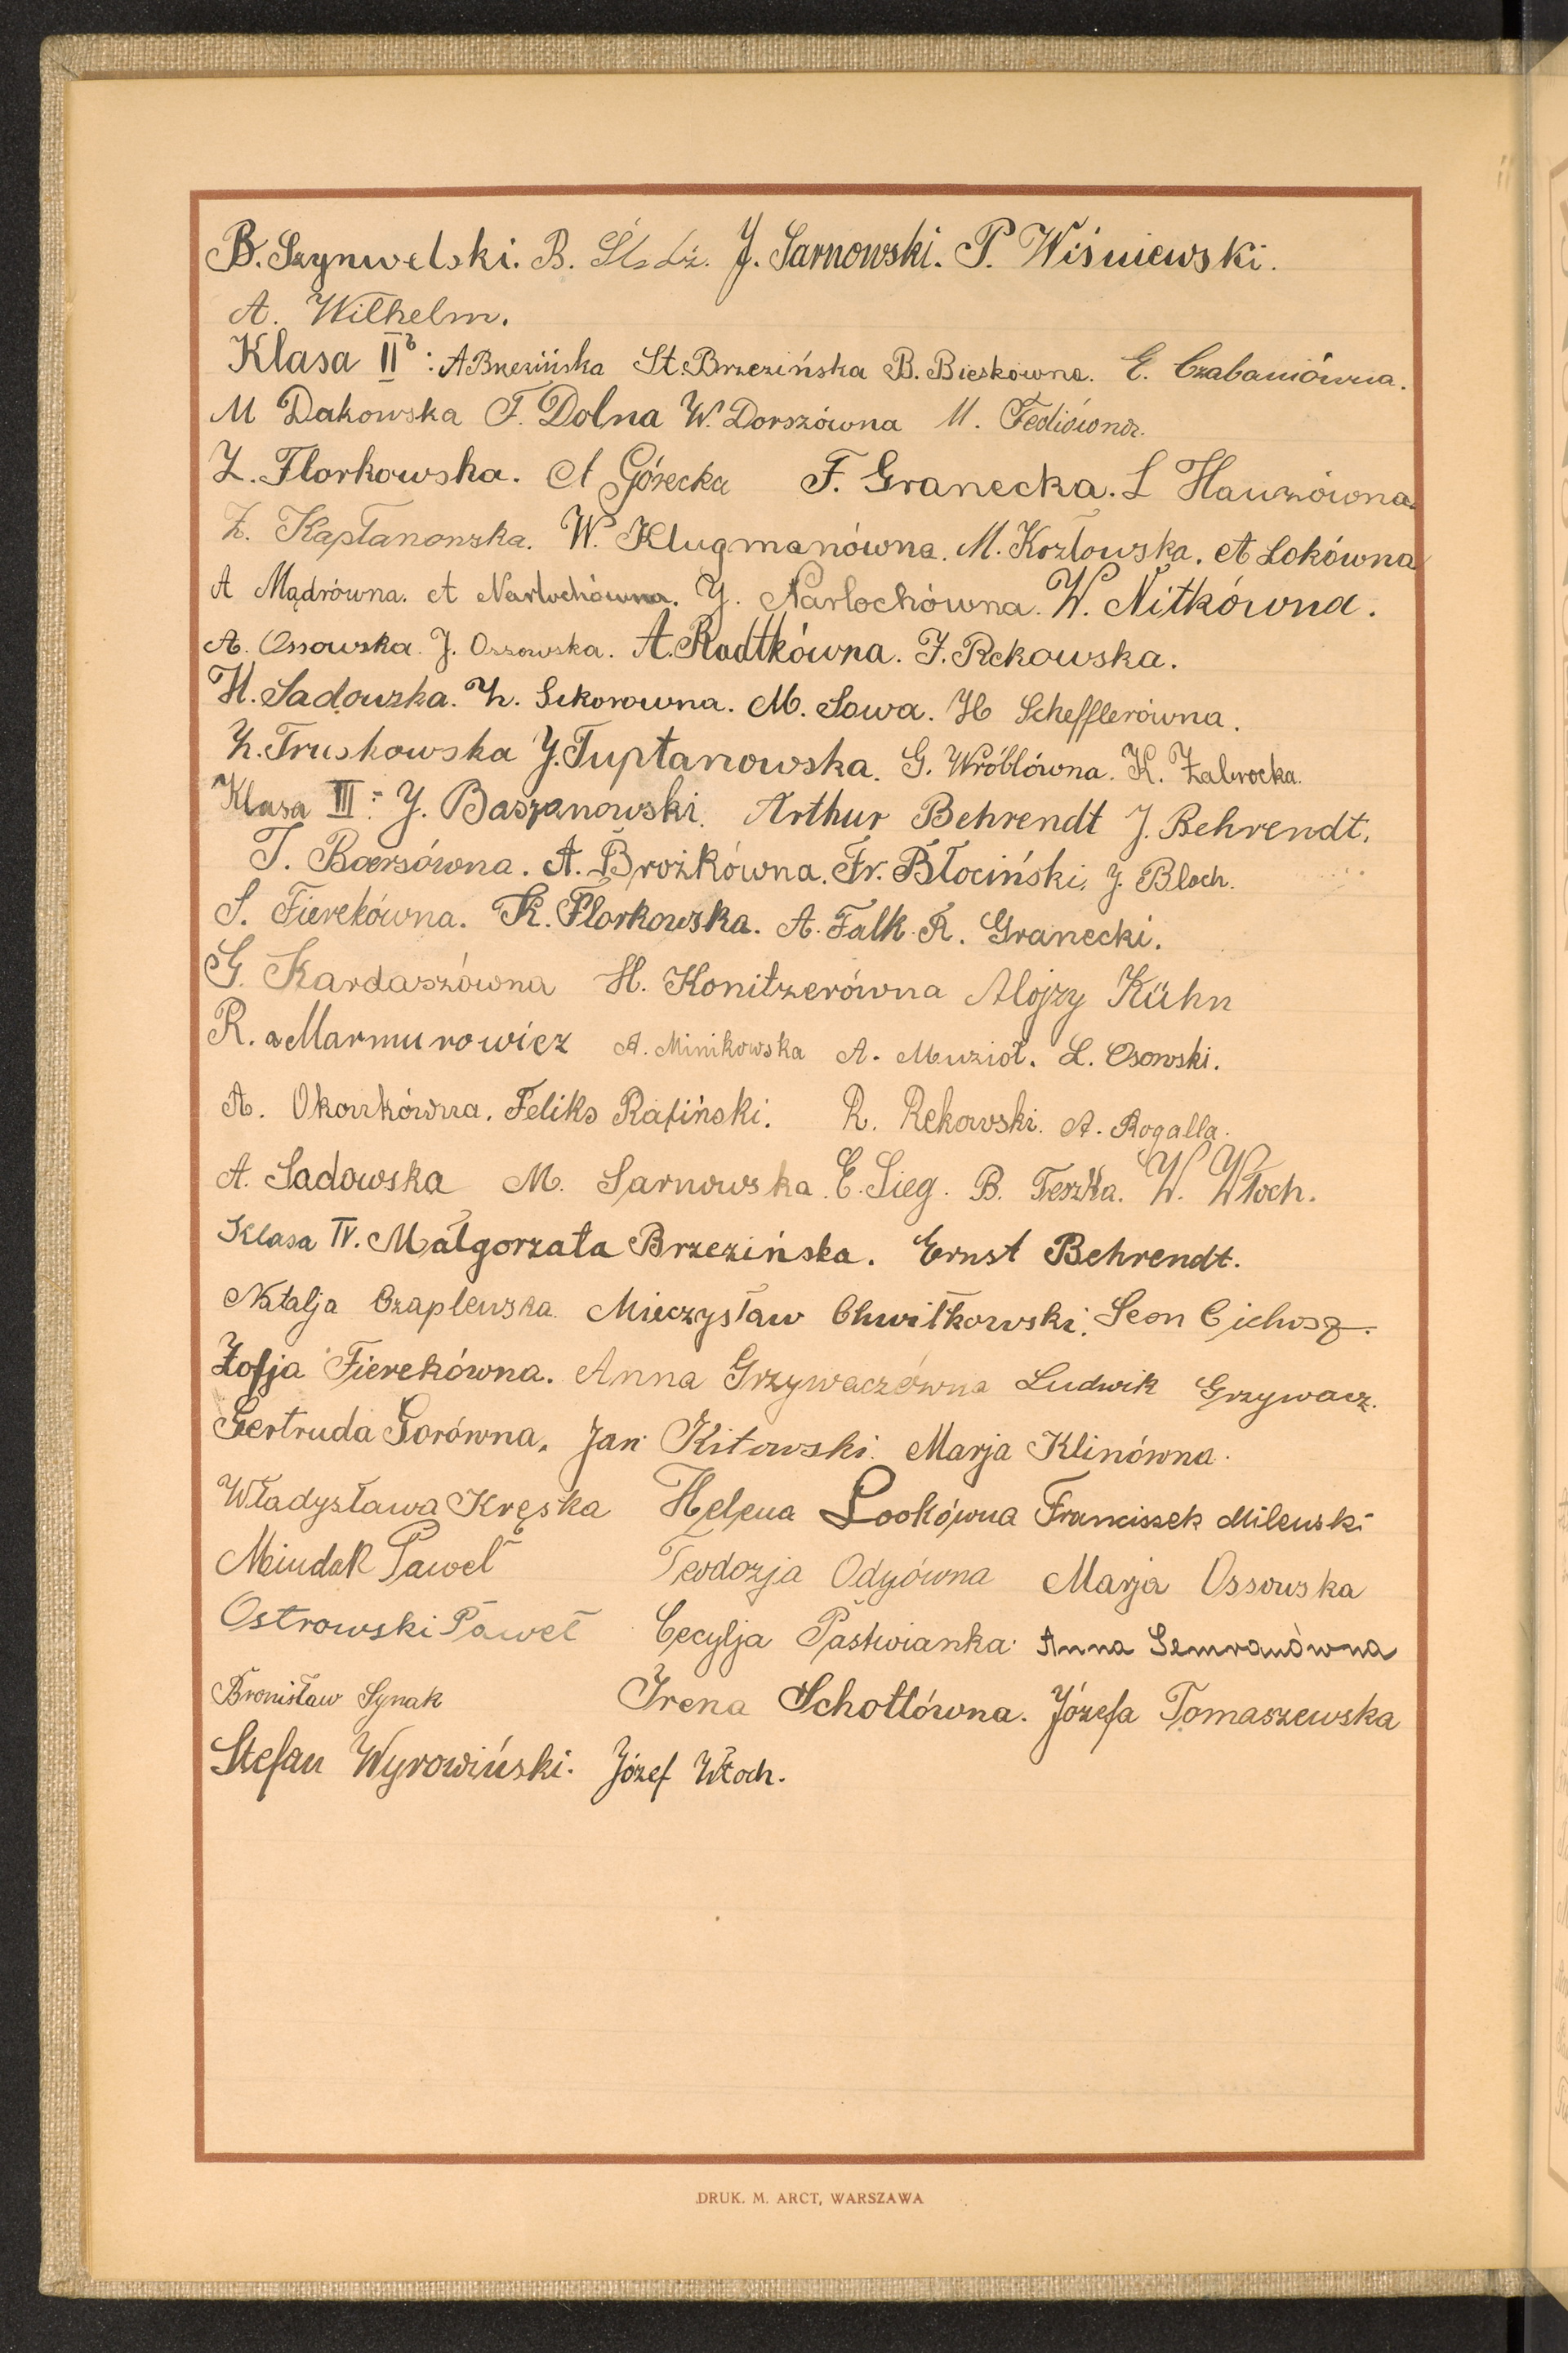 B. Szynwelski. B. J. Sarnowski. P. Wiśniewski.
A. Wilhelm.
Klasa IIb: A Brzezińska St. Brzezińska B. Bieskówna. E. Czabaniówna.
M Dakowska F. Dolna W. Dorszówna M.
Z. Florkowska. A Górecka F. Granecka. L Hauzówna.
Z. Kapłanowska. W. Klugmanówna. M. Kozłowska. A Lokówna
A Mądrówna. A Narlochówna. J. Narlochówna. W. Nitkówna.
A. Ossowska. J. Ossowska. A. Radtkówna. J. Rekowska.
H. Sadowska. Z. Sikorowna. M. Sowa. H Schefflerówna.
Z. Truskowska J. Tuptanowska. G. Wróblówna. K. Zabrocka.
Klasa III: J. Baszanowski. Arthur Behrendt J. Behrendt.
T. A. Brożkówna. Fr. Błociński, J. Bloch.
S. Fierekówna. K. Florkowska. A. Falk. R. Granecki.
G. Kardaszówna H. Konitzerówna Alojzy Kühn
R. Marmurowicz A. Minikowska A. Muzioł. L. Osowski.
A. Feliks Rafiński. R. Rekowski. A. Rogalla.
A. Sadowska M. Sarnowska. E. Sieg. B. Teszka. W. Włoch.
Klasa IV. Małgorzata Brzezińska. Ernst Behrendt.
Natalja Czaplewska Mieczysław Chwiłkowski. Leon Cichosz.
Zofja Fierekówna. Anna Grzywaczówna Ludwik Grzywacz.
Gertruda Gorówna. Jan Kitowski. Marja Klinówna.
Władysława Kręska Helena Lookówna Franciszek Milewski
Miudak Paweł Teodozja Odyówna Marja Ossowska
Ostrowski Paweł Cecylja Pastwianka. Anna Semrauówna
Bronisław Synak Irena Schottówna. Józefa Tomaszewska
Stefan Wyrowiński. Józef Włoch.
DRUK. M. ARCT, WARSZAWA